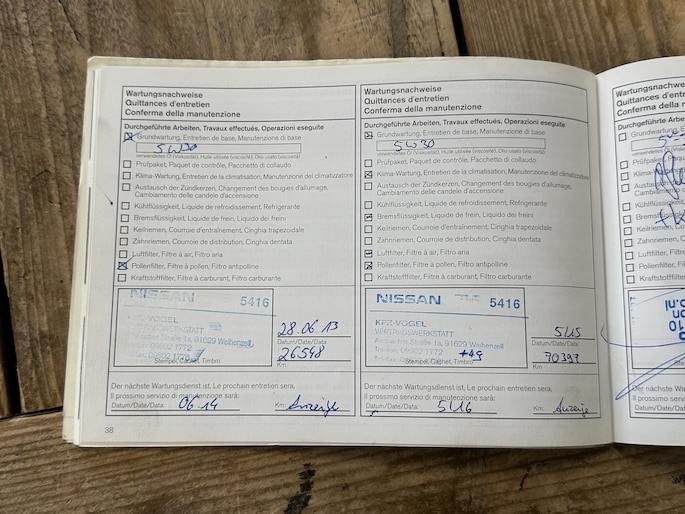 Wartungsnachweise
Quittances d'entretien
Conferma della manutenzione
Durchgeführte Arbeiten, Travaux effectués, Operazioni eseguite
Grundwartung, Entretien de base, Manutenzione di base
5W30
verwendetes Öl (Viskosität), Huile utilisée (viscosité), Olio usato (viscosità)
Prüfpaket, Paquet de contrôle, Pacchetto di collaudo
Klima-Wartung, Entretien de la climatisation, Manutenzione del climatizzatore
Austausch der Zündkerzen, Changement des bougies d'allumage,
Cambiamento delle candele d'accensione
Kühlflüssigkeit, Liquide de refroidissement, Refrigerante
Bremsflüssigkeit, Liquide de frein, Liquido dei freini
Keilriemen, Courroie d'entraînement, Cinghia trapezoidale
Zahnriemen, Courroie de distribution, Cinghia dentata
Luftfilter, Filtre à air, Filtro aria
Pollenfilter, Filtre à pollen, Filtro antipolline
Kraftstofffilter, Filtre à carburant, Filtro carburante
NISSAN 5416
KFZ-VOGEL
VERTRAGSWERKSTATT
Ansbacher Straße 1a, 91629 Weihenzell
09802 1772
Stempel, Cachet, Timbro
28.06 13
Datum/Date/Data
26548
Km
Der nächste Wartungsdienst ist, Le prochain entretien sera,
Il prossimo servizio di manutenzione sarà:
Datum/Date/Data: 06.14 Km: Anzeige
38
Wartungsnachweise
Quittances d'entretien
Conferma della manutenzione
Durchgeführte Arbeiten, Travaux effectués, Operazioni eseguite
Grundwartung, Entretien de base, Manutenzione di base
5W30
verwendetes Öl (Viskosität), Huile utilisée (viscosité), Olio usato (viscosità)
Prüfpaket, Paquet de contrôle, Pacchetto di collaudo
Klima-Wartung, Entretien de la climatisation, Manutenzione del climatizzatore
Austausch der Zündkerzen, Changement des bougies d'allumage,
Cambiamento delle candele d'accensione
Kühlflüssigkeit, Liquide de refroidissement, Refrigerante
Bremsflüssigkeit, Liquide de frein, Liquido dei freini
Keilriemen, Courroie d'entraînement, Cinghia trapezoidale
Zahnriemen, Courroie de distribution, Cinghia dentata
Luftfilter, Filtre à air, Filtro aria
Pollenfilter, Filtre à pollen, Filtro antipolline
Kraftstofffilter, Filtre à carburant, Filtro carburante
NISSAN 5416
KFZ-VOGEL
VERTRAGSWERKSTATT
Ansbacher Straße 1a, 91629 Weihenzell
09802 1772
Stempel, Cachet, Timbro
5/15
Datum/Date/Data
70393
Km
Der nächste Wartungsdienst ist, Le prochain entretien sera,
Il prossimo servizio di manutenzione sarà:
Datum/Date/Data: 5/16 Km: Anzeige
Wartungsnachweise
Quittances d'entretien
Conferma della
Durchgeführte Arbeiten
Grundwartung
Prüfpaket
Klima-Wartung
Austausch der
Cambiamento
Kühlflüssigkeit
Bremsflüssigkeit
Keilriemen, C
Zahnriemen,
Luftfilter, Filtre
Pollenfilter, Filtre
Kraftstofffilter
Der nächste Wartung
Il prossimo servizio
Datum/Date/Data: